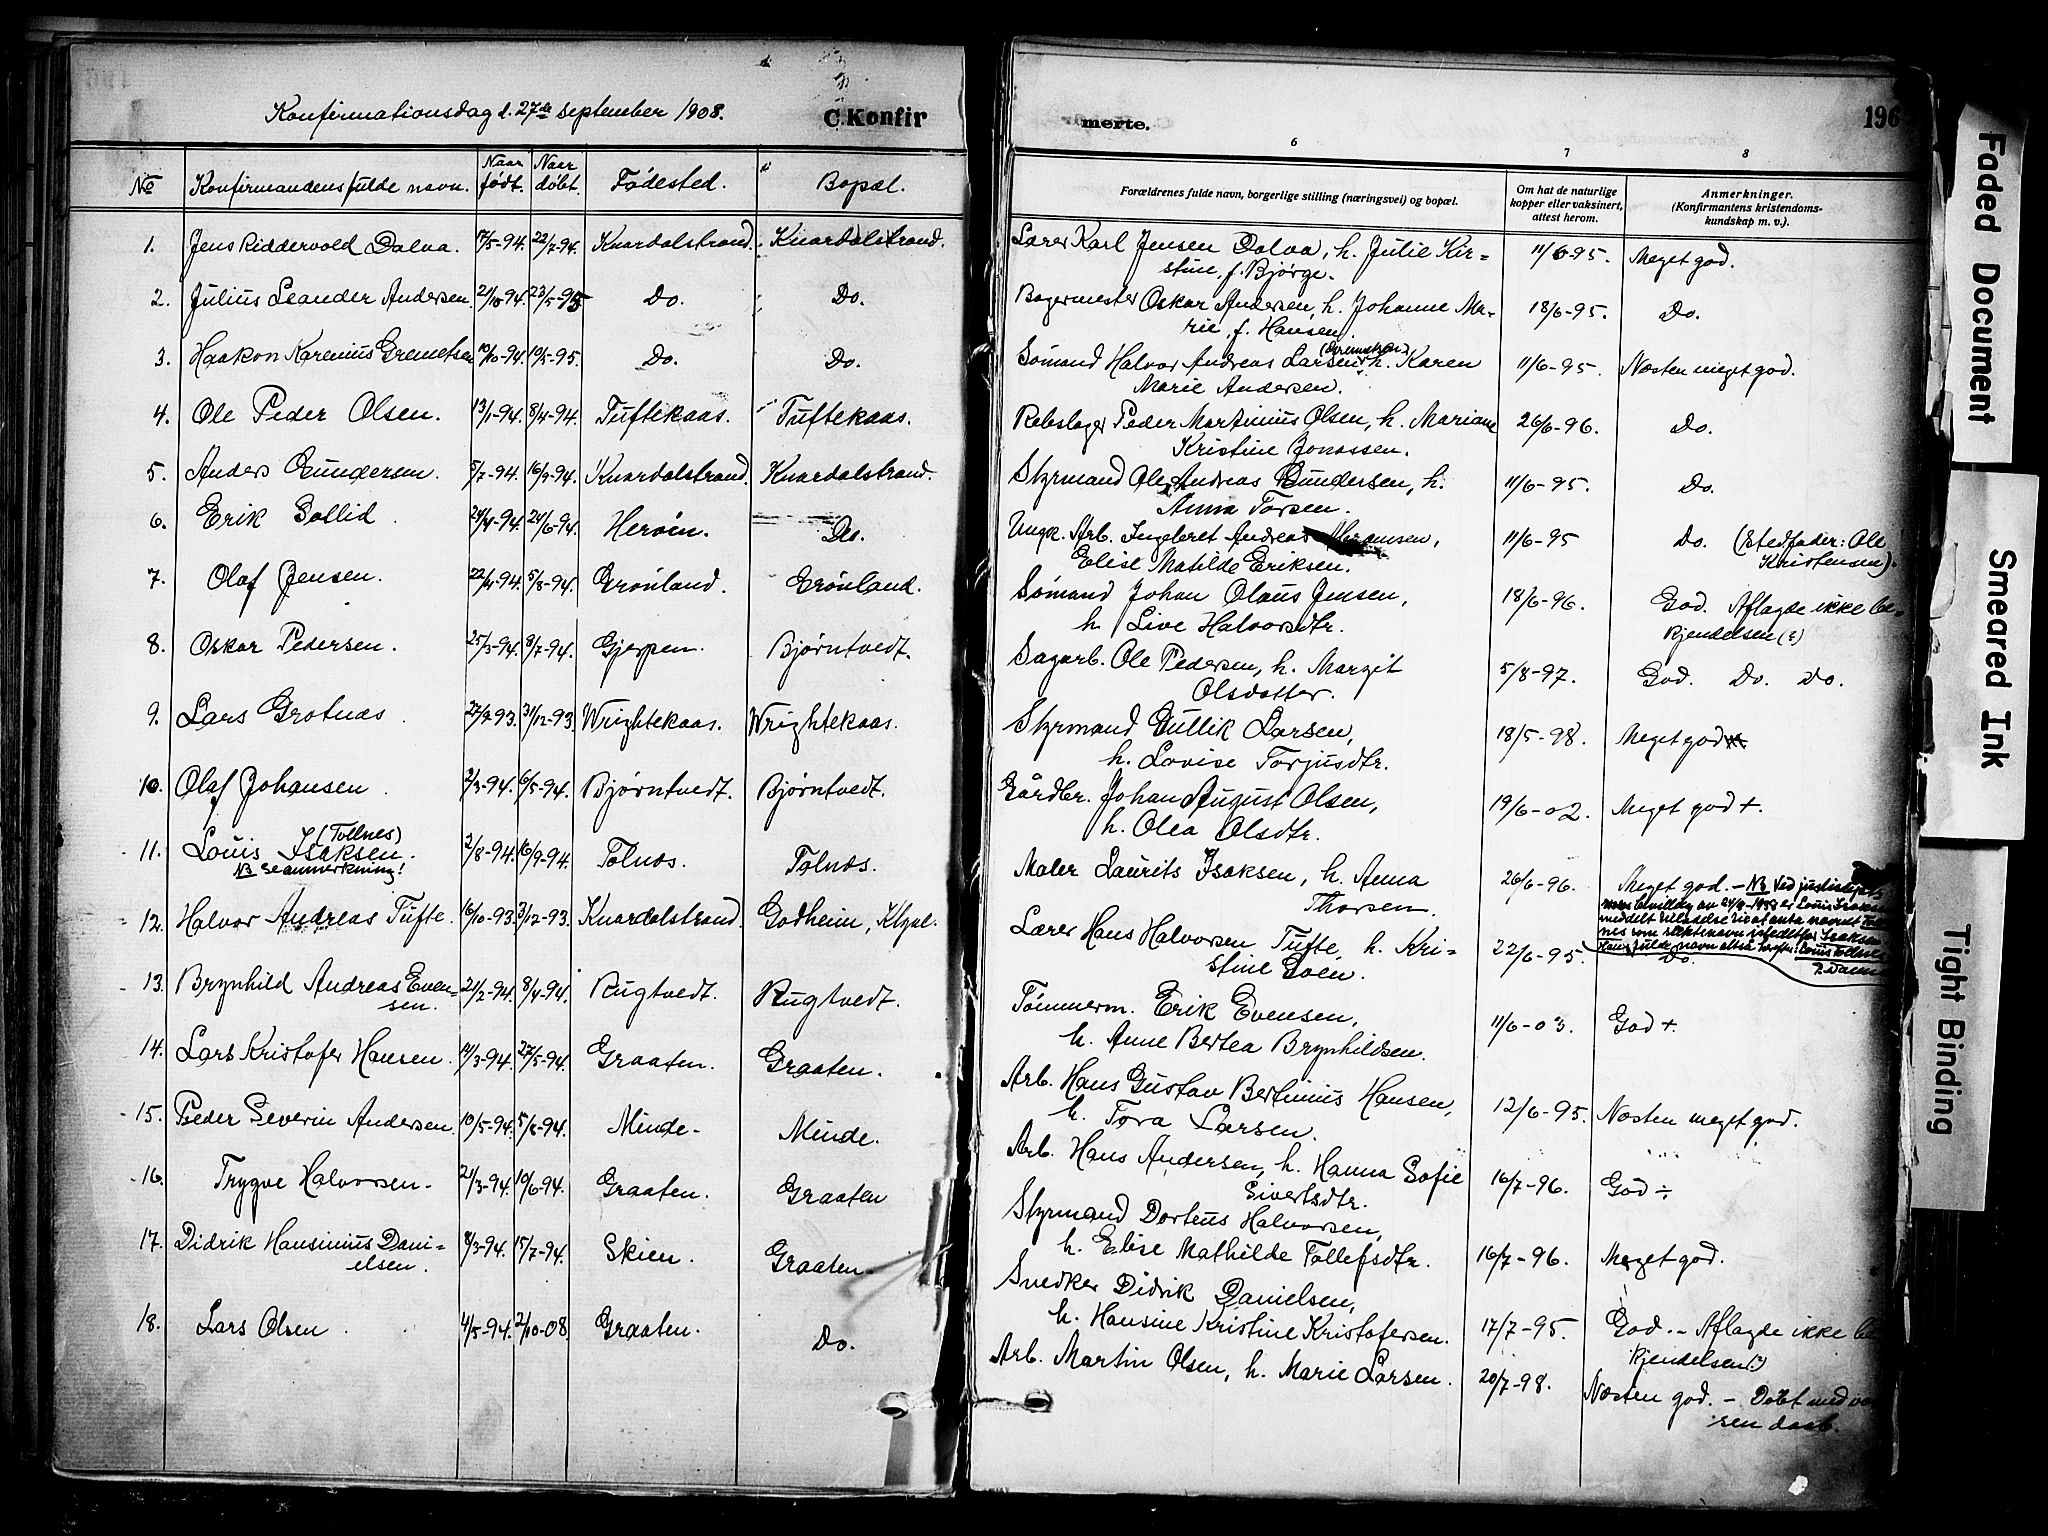 Konfirmationsdag d. 27de september 1908.
C. Konfir
merte.
196
№ Konfirmandens fulde navn. Naar født. Naar døbt. Fødested. Bopæl.
6 7 8
Forældrenes fulde navn, borgerlige stilling (næringsvei) og bopæl.
Om hat de naturlige kopper eller vaksinert, attest herom.
Anmerkninger. (Konfirmantens kristendoms-kundskap m. v.).
1. Jens Riddervold Dalva. 17/5-94. 22/7-94. Knardalstrand. Knardalstrand.
2. Julius Leander Andersen. 2/10-94. 23/5-95 Do. Do.
3. Haakon Karenius Gremetsen 10/10-94. 19/5-95. Do. Do.
4. Ole Peder Olsen. 13/1-94. 8/4-94. Tuftekaas. Tuftekaas.
5. Anders Gundersen. 5/7-94. 16/9-94. Knardalstrand. Knardalstrand.
6. Erik Sollid 24/4-94. 24/6-94. Herøen. Do.
7. Olaf Jensen. 22/4-94. 5/8-94. Grønland. Grønland.
8. Oskar Pedersen. 25/3-94. 8/7-94. Gjerpen. Bjørntvedt.
9. Lars Grotnæs 27/9-93. 31/12-93 Wrightekaas. Wrightekaas.
10. Olaf Johansen 2/3-94. 6/5-94. Bjørntvedt. Bjørntvedt.
11. Louis Isaksen. (Tollnes) 2/8-94. 16/9-94. Tolnæs. Tolnæs.
NB Se anmerkning!
12. Halvor Andreas Tufte. 16/10-93. 3/12-93. Knardalstrand. Godheim, Klyve.
13. Brynhild Andreas Even- 21/2-94. 8/4-94. Rugtvedt. Rugtvedt.
sen.
14. Lars Kristofer Hansen. 14/3-94. 27/5-94. Graaten. Graaten.
15. Peder Severin Andersen. 10/5-94. 5/8-94. Minde. Minde.
16. Trygve Halvorsen. 21/3-94. 10/6-94. Graaten. Graaten
17. Didrik Hansinius Dani- 8/3-94. 15/7-94. Skien. Graaten
elsen.
18. Lars Olsen. 4/5-94. 2/10-08 Graaten. Do.
Lærer Karl Jensen Dalva, h. Julie Kir= 11/6-95. Meget god.
stine, f. Bjørge.
Bagermester Oskar Andersen, h. Johanne Ma- 18/6-95. Do.
rie, f. Hansen.
Sømand Halvor Andreas Larsen, h. Karen 11/6-95. Næsten meget god.
Marie Andersen.
Rebslager Peder Martinius Olsen, h. Mariane 26/6-96. Do.
Kristine Jonassen.
Styrmand Ole Andreas Gundersen, h. 11/6-95. Do.
Anna Torsen.
Ungk. Arb. Ingebret Andreas Abramsen, 11/6-95 Do. (Stedfader: Ole
Elise Matilde Eriksen. Kristensen).
Sømand Johan Olaus Jensen, 18/6-96. God. Aflagde ikke be-
h. Live Halvorsdtr. kjendelsen
Sagarb. Ole Pedersen, h. Margit 5/8-97. God. Do. Do.
Olsdatter.
Styrmand Gullik Larsen, 18/5-98. Meget god
h. Lovise Torjusdtr.
Gårdbr. Johan August Olsen, 19/6-02. Meget god +.
h. Olea Olsdtr.
Maler Laurits Isaksen, h. Anna 26/6-96. Meget god. – NB Ved justisdepts
Thorsen. bevilling av 24/9-1953 er Louis Isaksen
meddelt tillatelse til at anta navnet Toll
nes som slektsnavn istedetfor Isaksen
Hans fulde navn altså herefter: Louis Tollnes
Lærer Hans Halvorsen Tufte, h. Kri- 22/6-95. Do.
stine Goen.
Tømmerm. Erik Evensen, 11/6-03. God +.
h. Anne Bertea Brynhildsen.
Arb. Hans Gustav Bertinius Hansen, 12/6-95. Næsten meget god.
h. Tora Larsen.
Arb. Hans Andersen, h. Hanna Sofie 16/7-96. God ÷
Sivertsdtr.
Styrmand Dorteus Halvorsen, 16/7-96. Meget god.
h. Elise Mathilde Tollefsdtr.
Snedker Didrik Danielsen, 17/7-95. God. – Aflagde ikke be
h. Hansine Kristine Kristofersen. kjendelsen
Arb. Martin Olsen, h. Marie Larsen. 20/7-98. Næsten god. – Døbt med vo
sen daab.
Faded Document
Smeared Ink
Tight Binding